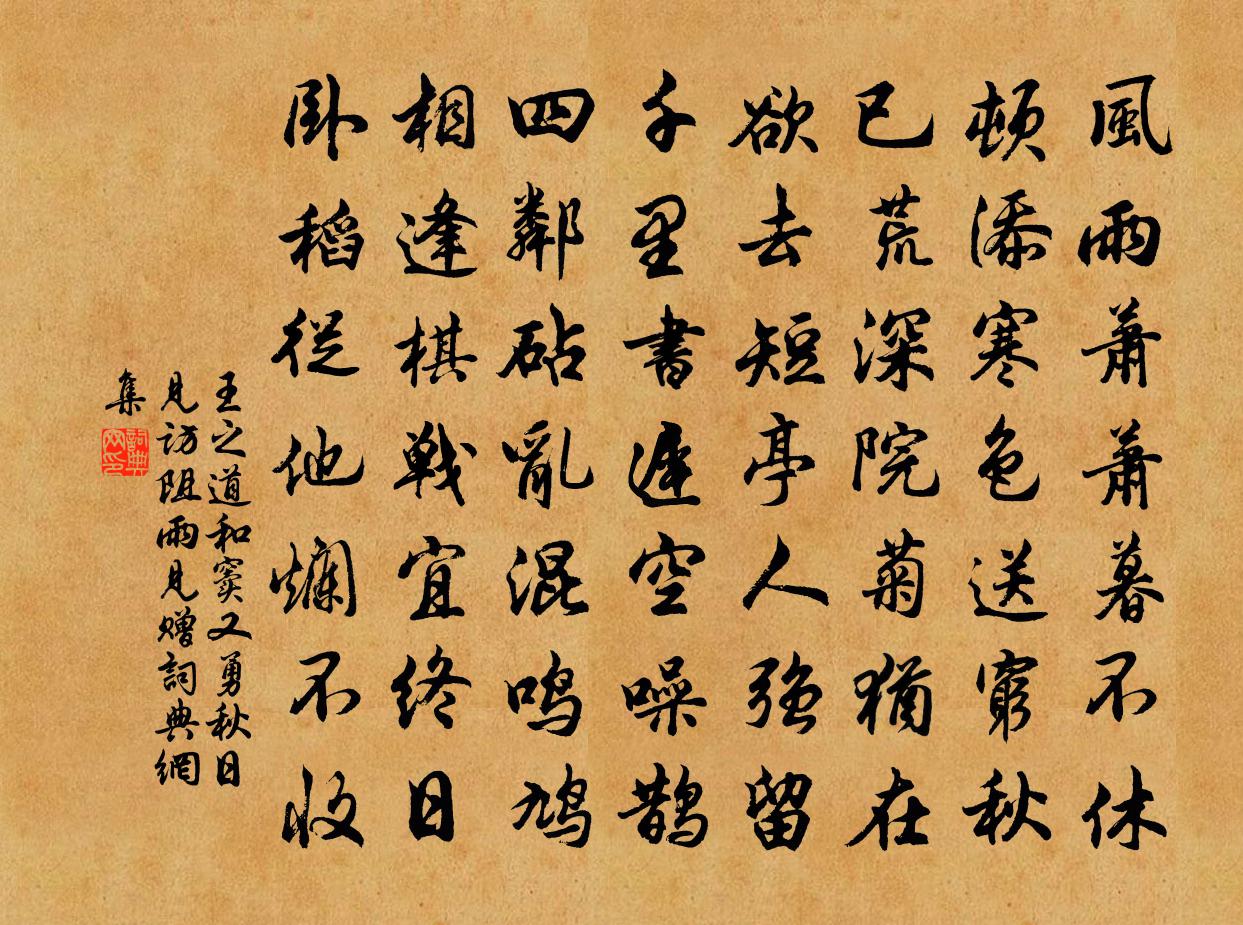 風雨蕭蕭暮不休
頓添寒色送窮秋
已荒深院菊猶在
欲去短亭人強留
千里書遲空噪鵲
四鄰砧亂混鳴鳩
相逢棋戰宜終日
臥稻從他爛不收
王之道和窦又勇秋日
見訪阻雨見贈詞典網
集
詞典
网印